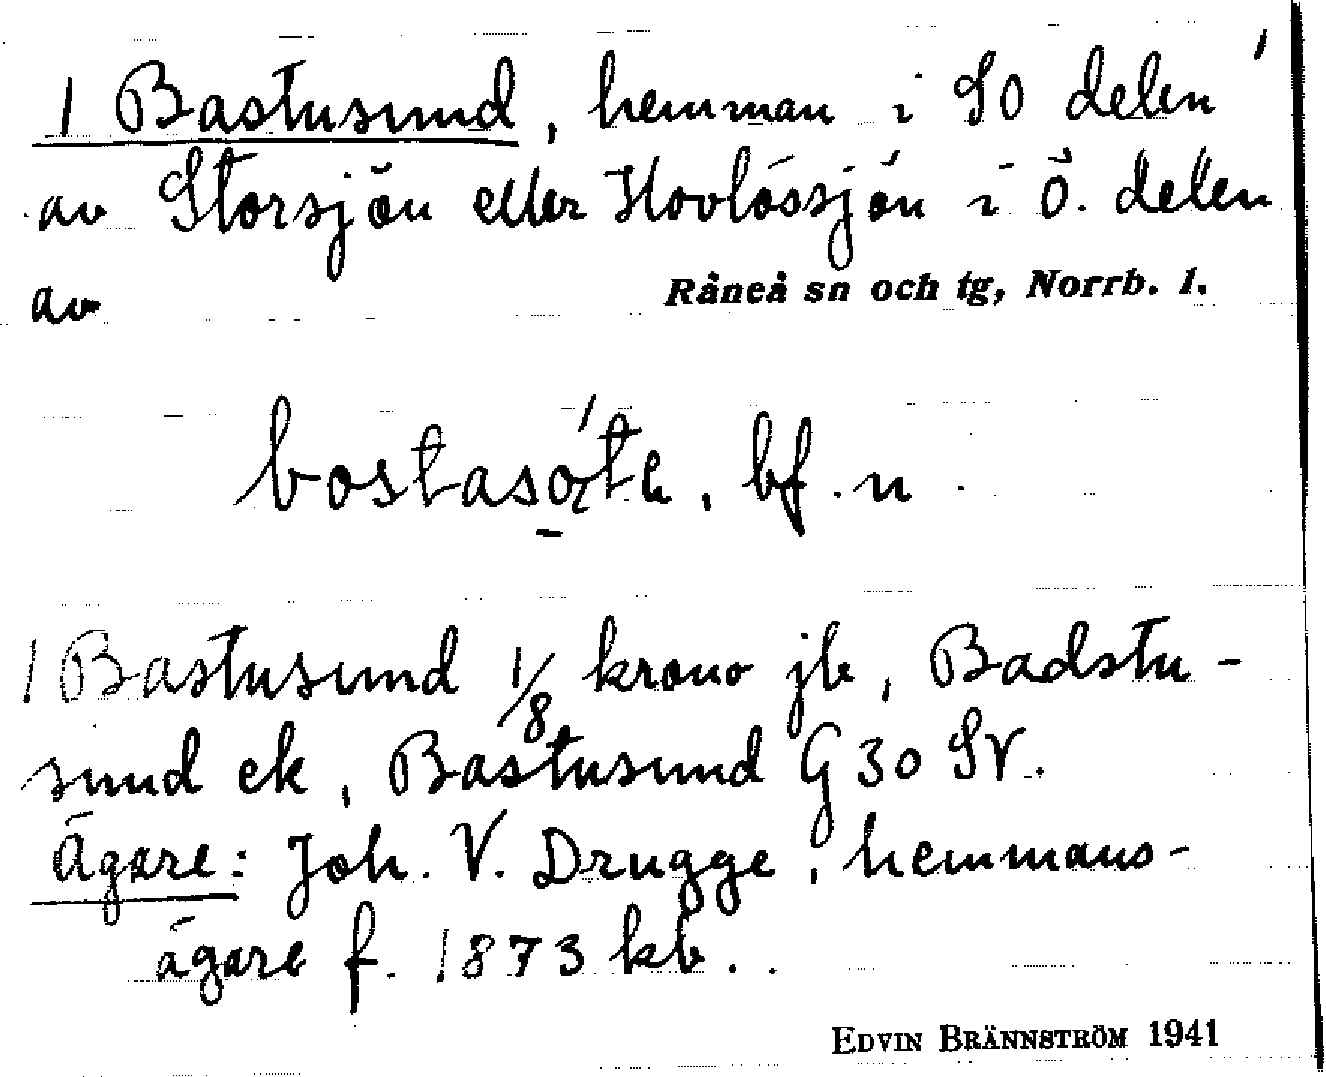 1 Bastusund, hemman i SO delen
av Storsjön eller Hovlössjön i Ö. delen
av Råneå sn och tg, Norrb. l.
bf. n
1 Bastusund 1/8 krono jb, Badstu-
sund ek, Bastusund G 30 SV.
Ägare: Joh. V. Drugge, hemmans-
ägare f. 1873 kb..
EDVIN BRÄNNSTRÖM 1941